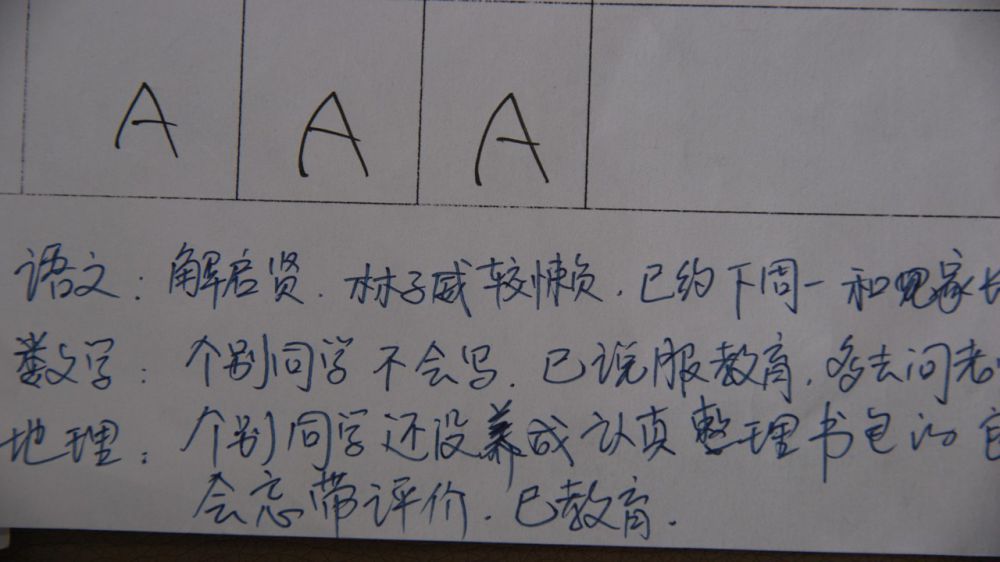 A A A
语文：解启贤．林子威较懒．已约下周一和家长
数学：个别同学不会写．已说服教育．多去问老
地理：个别同学还没养成认真整理书包的
会忘带评价．已教育．